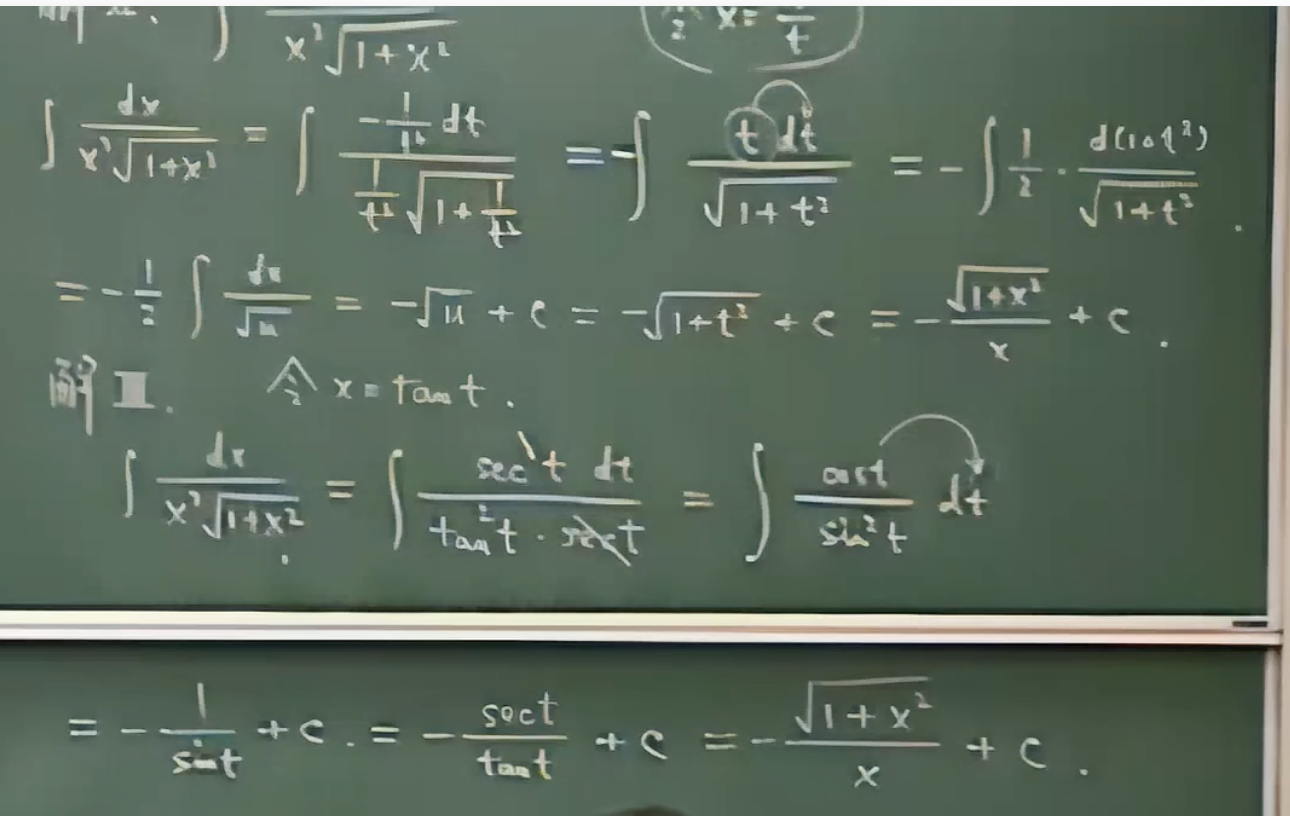 ∫ x²√(1+x²) 令 x = 1/t
∫ dx/(x²√(1+x²)) = ∫ (-1/t² dt)/(1/t² √(1+1/t²)) = -∫ t dt/√(1+t²) = -∫ 1/2 · d(1+t²)/√(1+t²).
= -1/2 ∫ du/√u = -√u + C = -√(1+t²) + C = -√(1+x²)/x + C.
解 II. 令 x = tan t.
∫ dx/(x²√(1+x²)) = ∫ sec²t dt/(tan²t · sec t) = ∫ cos t/sin²t dt
= -1/sin t + C. = -sec t/tan t + C = -√(1+x²)/x + C.